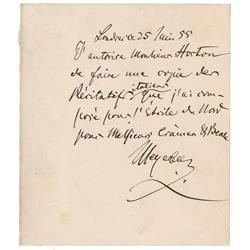 Londres ce 25 Juin 55
J'autorise Monsieur Horton
de faire une copie des
italiens
Récitatifs que j'ai com-
posé pour l'Etoile du Nord
pour Messieurs Cramer & Beale
Meyerbeer